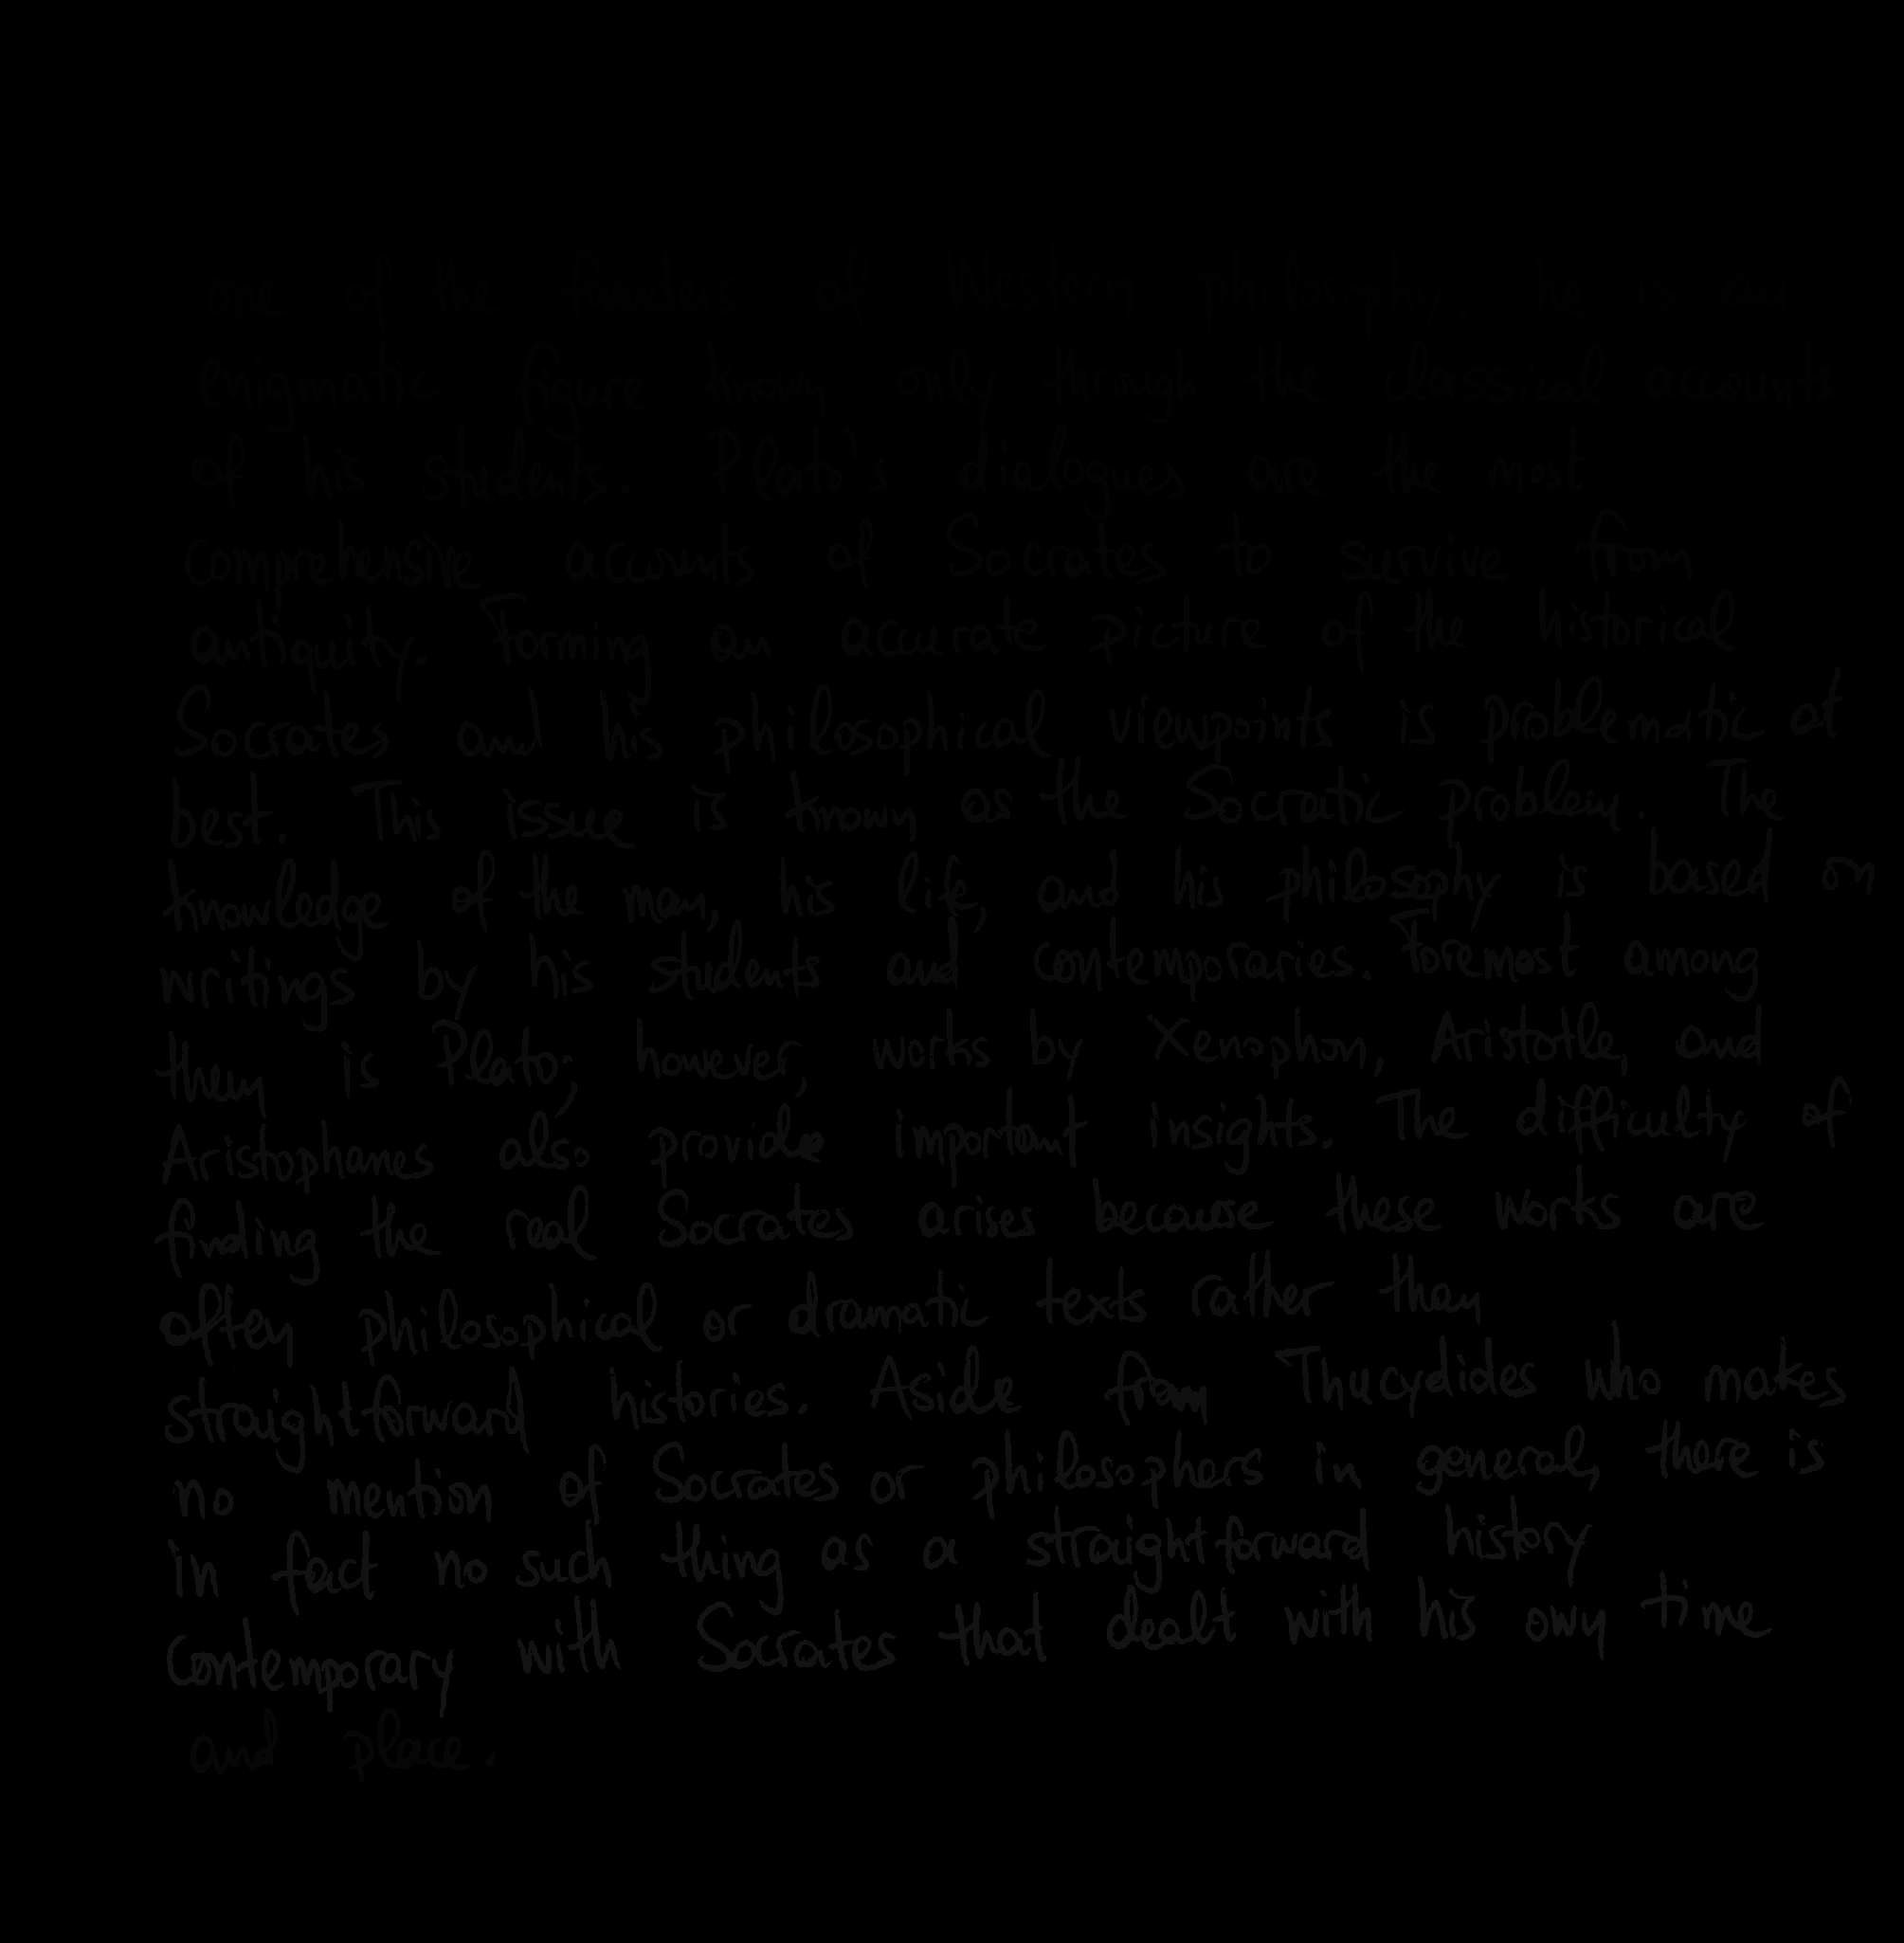 Socrates was a classical Greek philosopher. Credited as
one of the founders of Western philosophy, he is an
enigmatic figure known only through the classical accounts
of his students. Plato's dialogues are the most
comprehensive accounts of Socrates to survive from
antiquity. Forming an accurate picture of the historical
Socrates and his philosophical viewpoints is problematic at
best. This issue is known as the Socratic problem. The
knowledge of the man, his life, and his philosophy is based on
writings by his students and contemporaries. Foremost among
them is Plato; however, works by Xenophon, Aristotle, and
Aristophanes also provide important insights. The difficulty of
finding the real Socrates arises because these works are
often philosophical or dramatic texts rather than
straightforward histories. Aside from Thucydides who makes
no mention of Socrates or philosophers in general, there is
in fact no such thing as a straightforward history
contemporary with Socrates that dealt with his own time
and place.